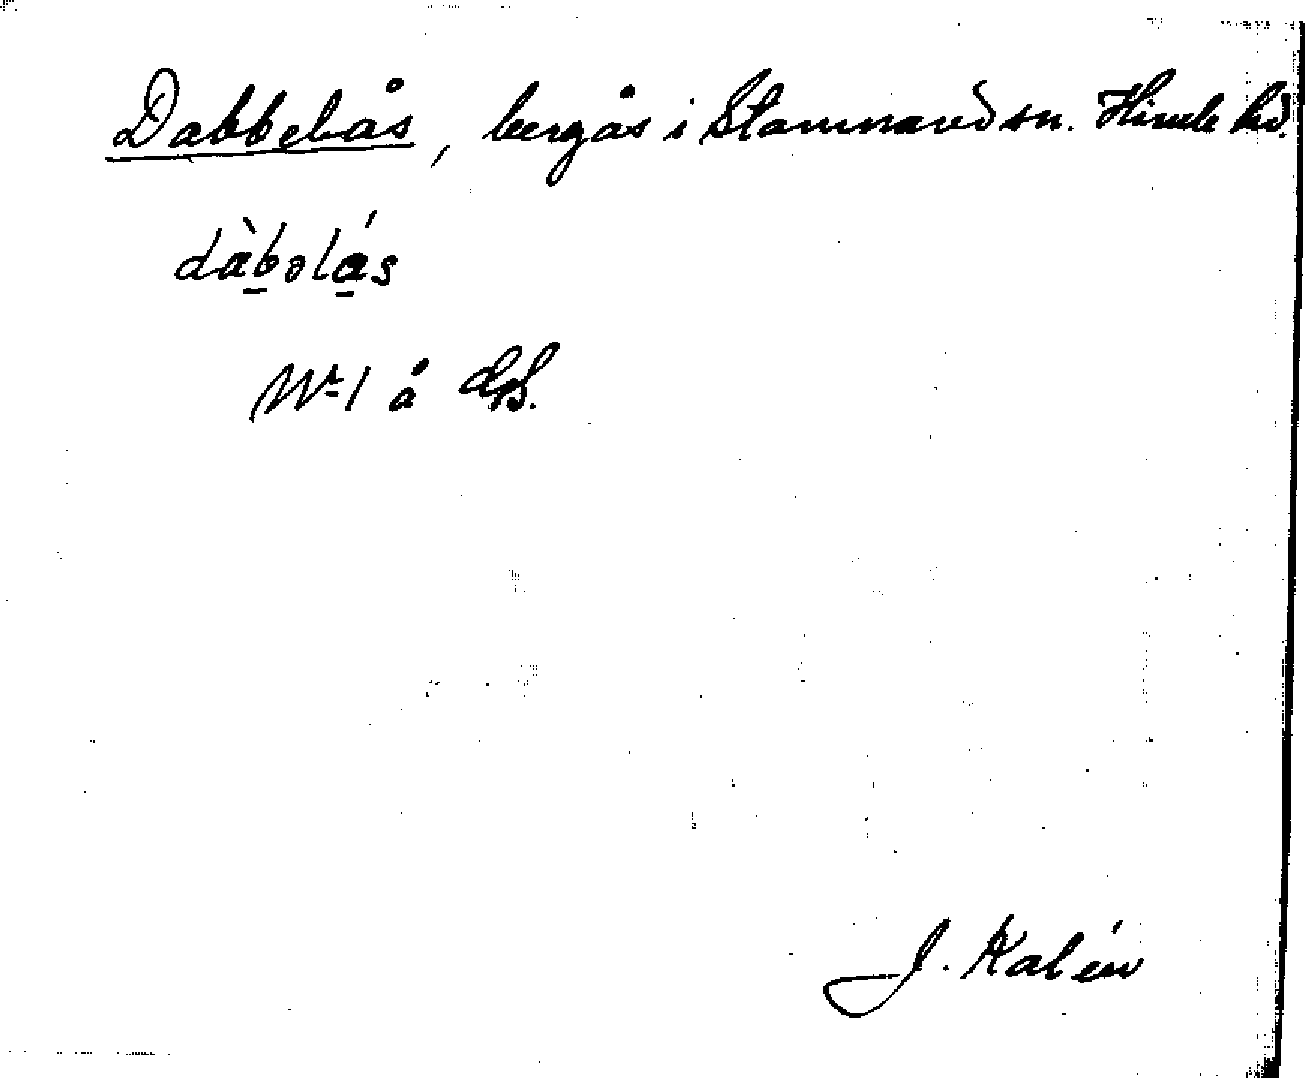 Dabbelås, bergås i Stamnared sn. Himle hd.
dàbəlás
Nr 1 å
J. Kalén